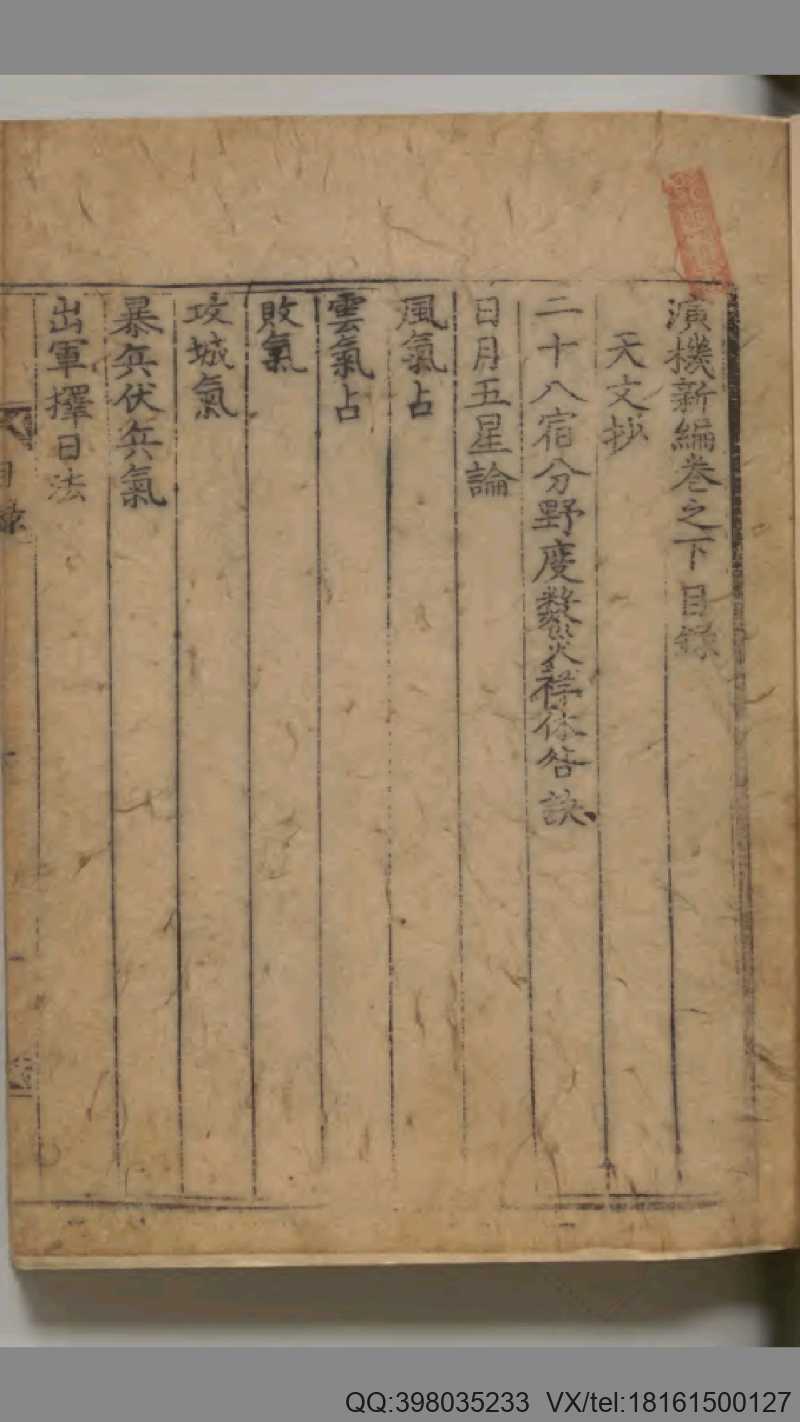 演機新編卷之下目錄
天文抄
二十八宿分野度數災祥休咎訣
日月五星論
風氣占
雲氣占
敗氣
攻城氣
暴兵伏兵氣
出軍擇日法
目錄
QQ:398035233 VX/tel:18161500127